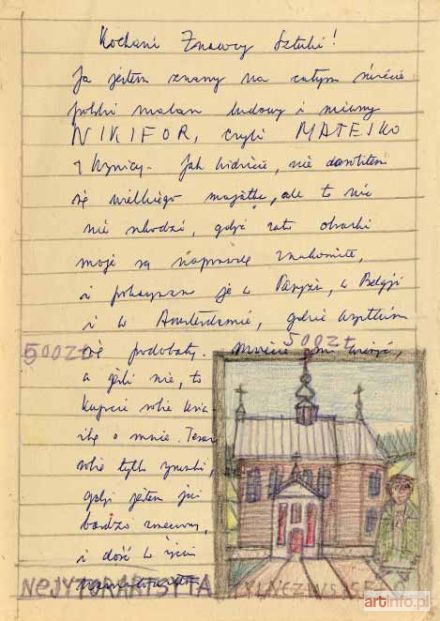 Kochani Znawcy Sztuki!
Ja jestem znany na całym świecie
polski malarz ludowy i niemy
NIKIFOR, czyli MATEJKO
z Krynicy. Jak widzicie, nie dorobiłem
się wielkiego majątku, ale to nic
nie szkodzi, gdyż zato obrazki
moje są naprawdę znakomite,
i pokazywano je w Paryżu, w Belgji
i w Amsterdamie, gdzie wszystkim
500ZŁ się podobały. Możecie mi wierzyć, 500ZŁ
a jeśli nie, to
kupcie sobie książ
kę o mnie. Teraz
robię tylko rysunki,
gdyż jestem już
bardzo zmęczony,
i dość w życiu
NEJYTORARTSYTA
artinfo.pl